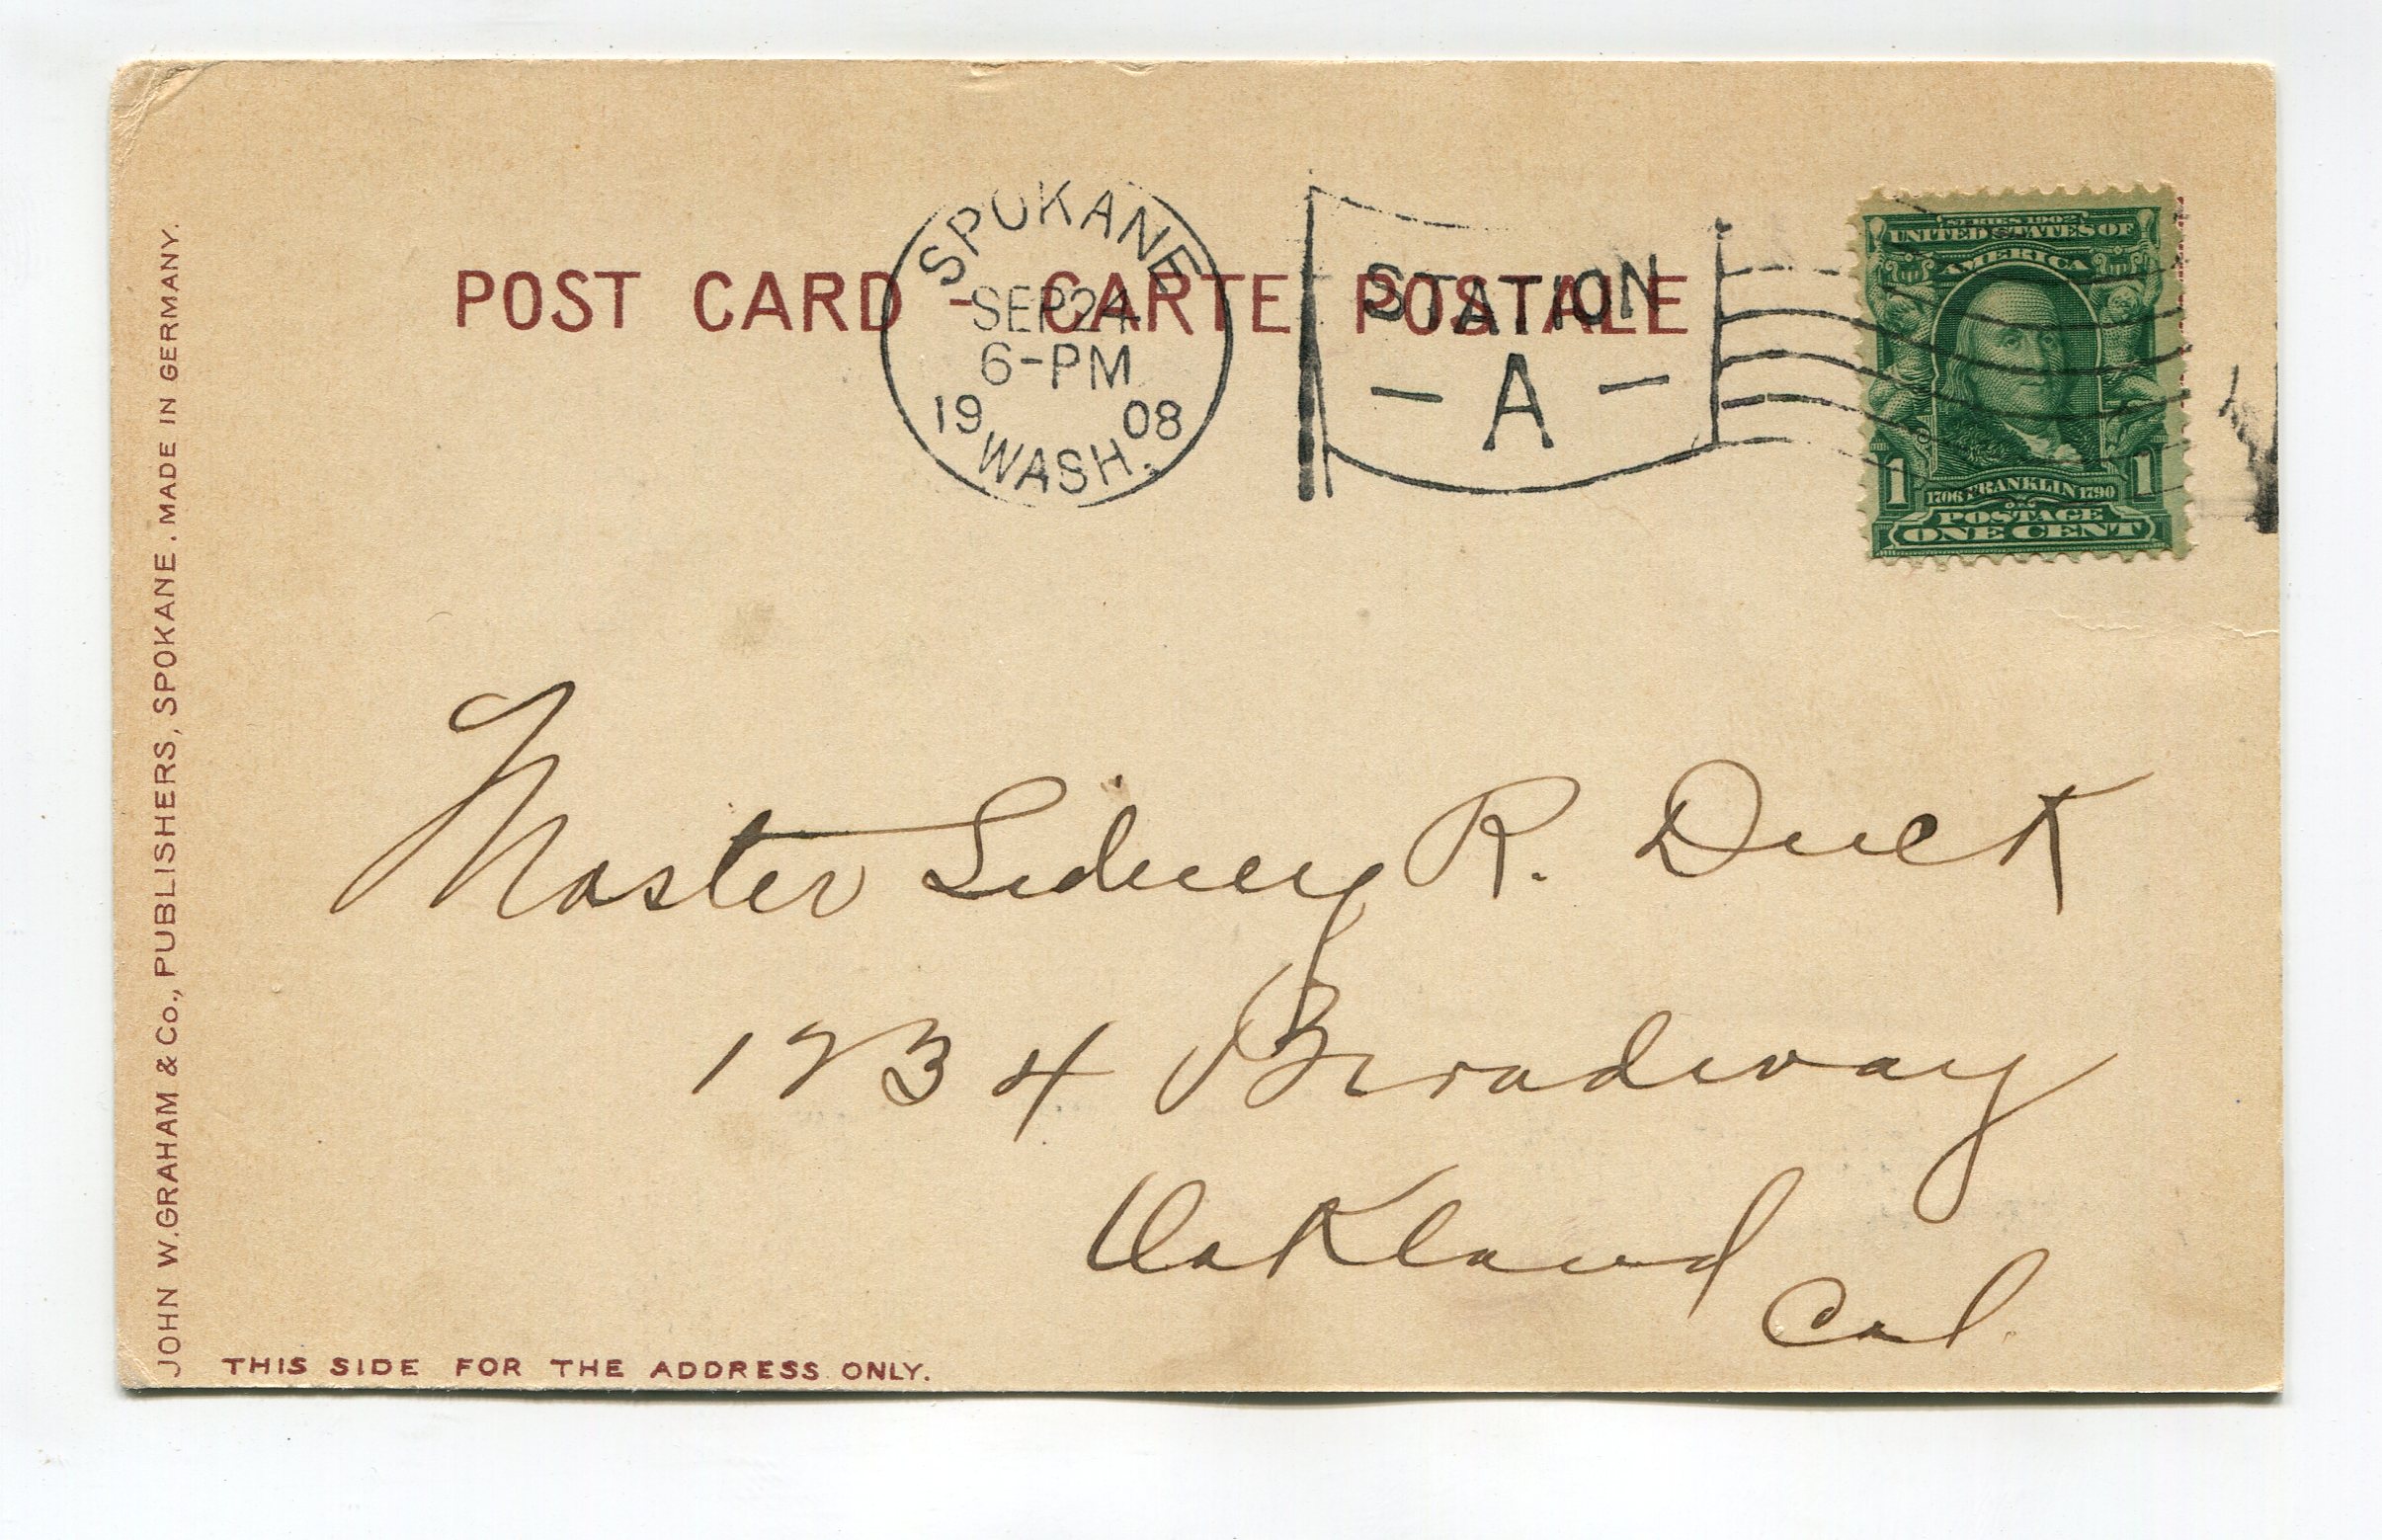 POST CARD - CARTE POSTALE
SPOKANE
SEP 24
6-PM
19 08
WASH.
STATION
- A -
SERIES 1902
UNITED STATES OF
AMERICA
1 1
1706 FRANKLIN 1790
POSTAGE
ONE CENT
Master Sidney R. Duck
1234 Broadway
Oakland
Cal.
JOHN W. GRAHAM & Co., PUBLISHERS, SPOKANE. MADE IN GERMANY.
THIS SIDE FOR THE ADDRESS ONLY.